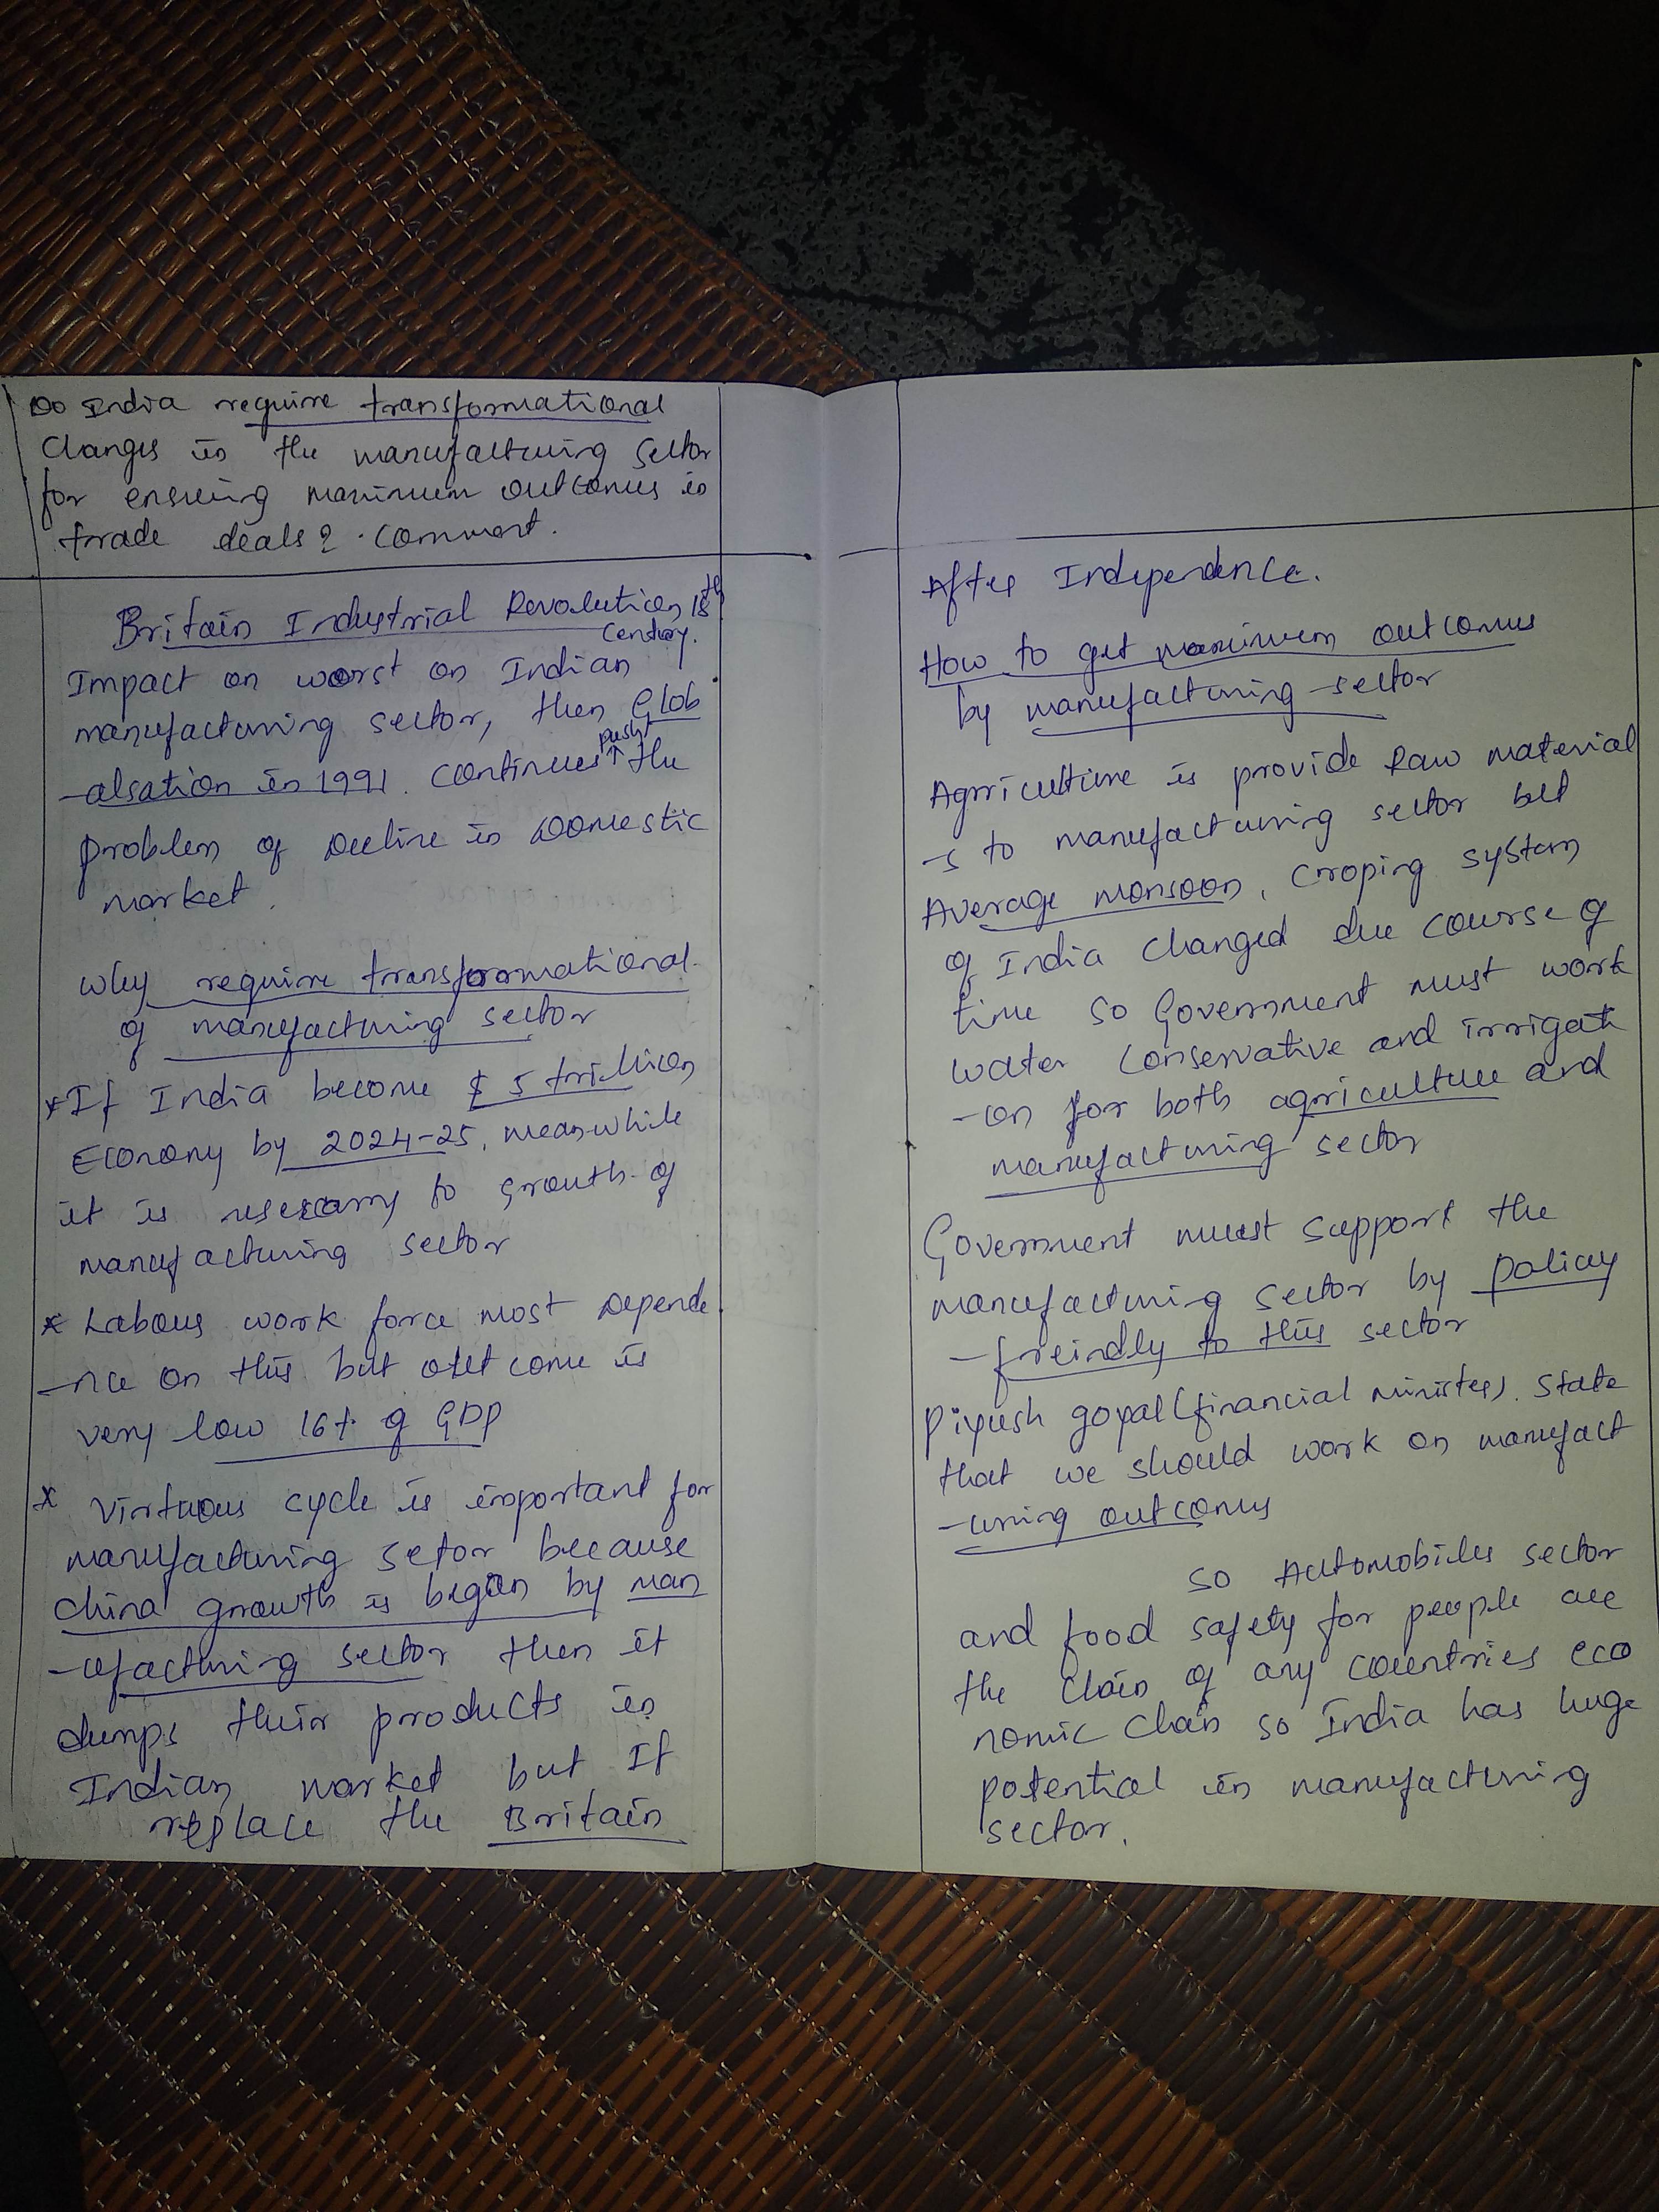 Do India require transformational
Changes in the manufacturing sector
for ensuring maximum outcomes in
trade deals? Comment.
Britain Industrial Revolution, 18th
Century.
Impact on worst on Indian
manufacturing sector, then Glob
-alsation in 1991. Continues push the
problem of Decline in Domestic
market.
Why require transformational
of manufacturing sector
*If India become $ 5 trillion
Economy by 2024-25, meanwhile
it is to growth of
manufacturing sector
* Labour work force most Depende
-nce on this but outcome is
very low 16% of GDP
* Virtuous cycle is important for
manufacturing setor because
China growth is began by man
-ufacturing sector then it
dumps their products in
Indian market but If
replace the Britain
After Independence.
How to get maximum outcomes
by manufacturing sector
Agriculture is provide Raw material
-s to manufacturing sector but
Average monsoon, Croping system
of India changed due course of
time so Government must work
water Conservative and irrigati
-on for both agriculture and
manufacturing sector
Government must support the
manufacturing sector by policy
-freindly to this sector
Piyush goyal (financial minister). State
that we should work on manufact
-uring outcomes
so Automobiles sector
and food safety for people are
the chain of any countries eco
nomic Chain so India has huge
potential in manufacturing
sector.